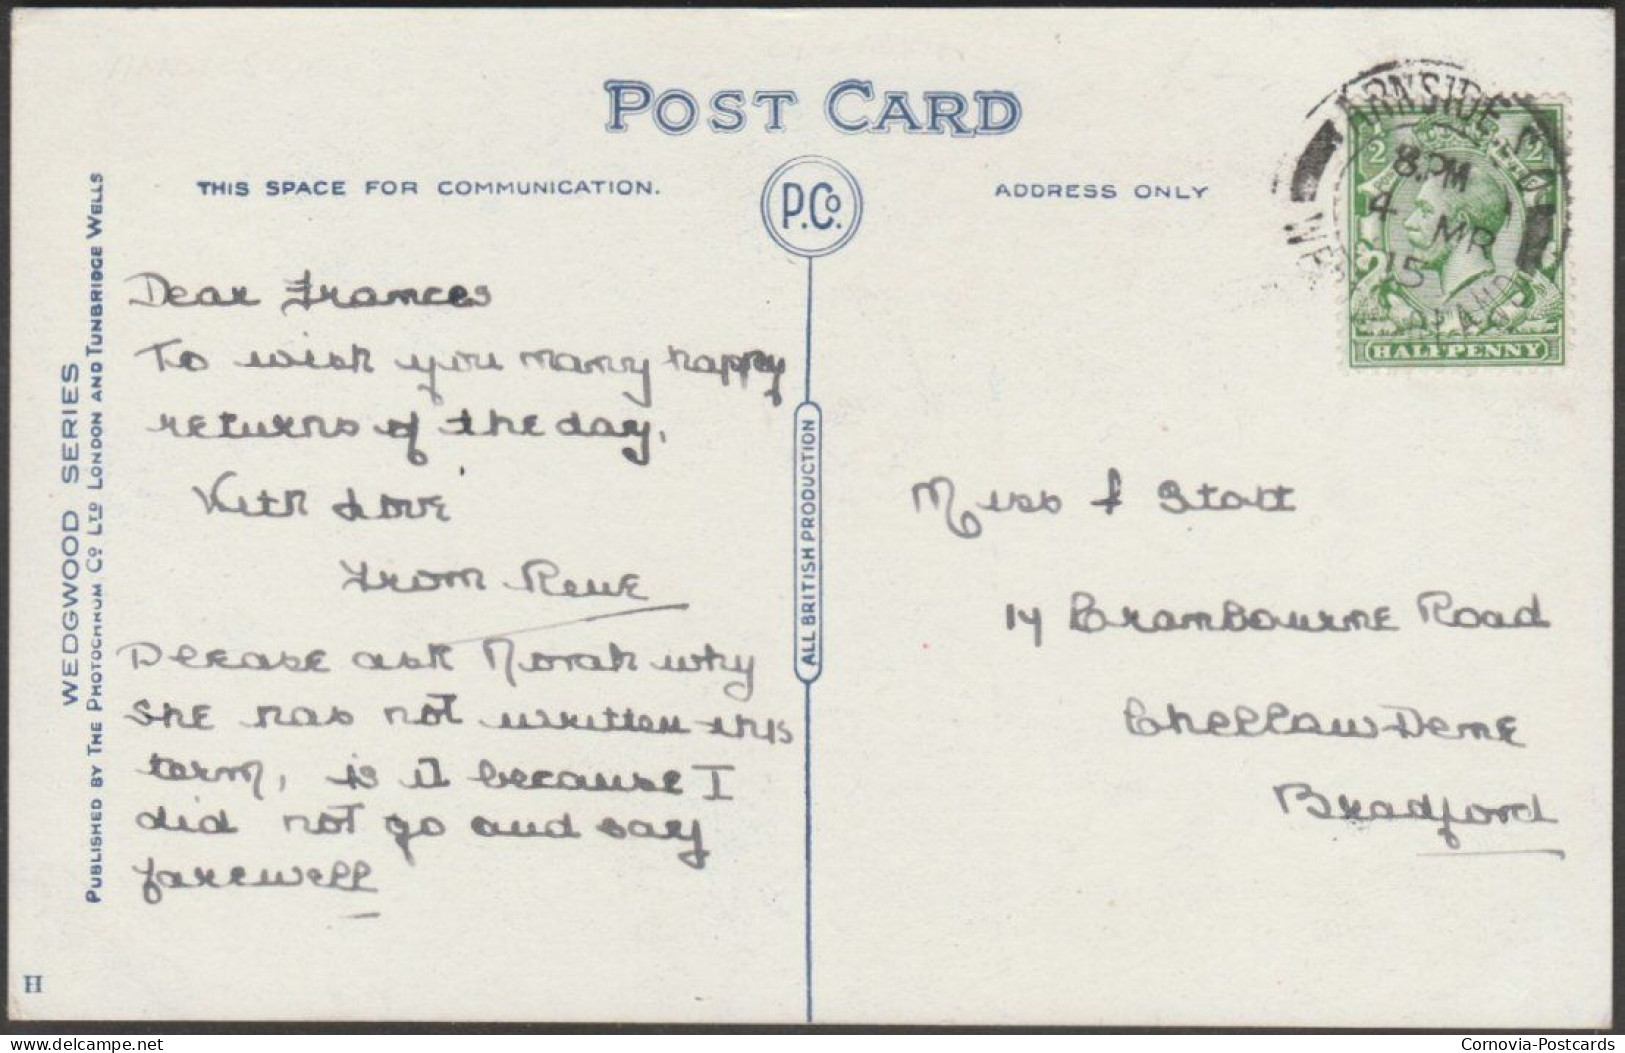 POST CARD
THIS SPACE FOR COMMUNICATION.
P.Co.
ADDRESS ONLY
ARNSIDE
8.PM
4 MR
15
HALFPENNY
WEDGWOOD SERIES
PUBLISHED BY THE PHOTOCHROM CO LTD LONDON AND TUNBRIDGE WELLS
ALL BRITISH PRODUCTION
Dear Frances
To wish you many happy
returns of the day,
With Love
From Rene
Please ask Norah why
she has not written this
term, is it because I
did not go and say
farewell
Miss F Stott
14 Brambourne Road
Chellow Dene
Bradford
H
delcampe.net
Cornovia-Postcards